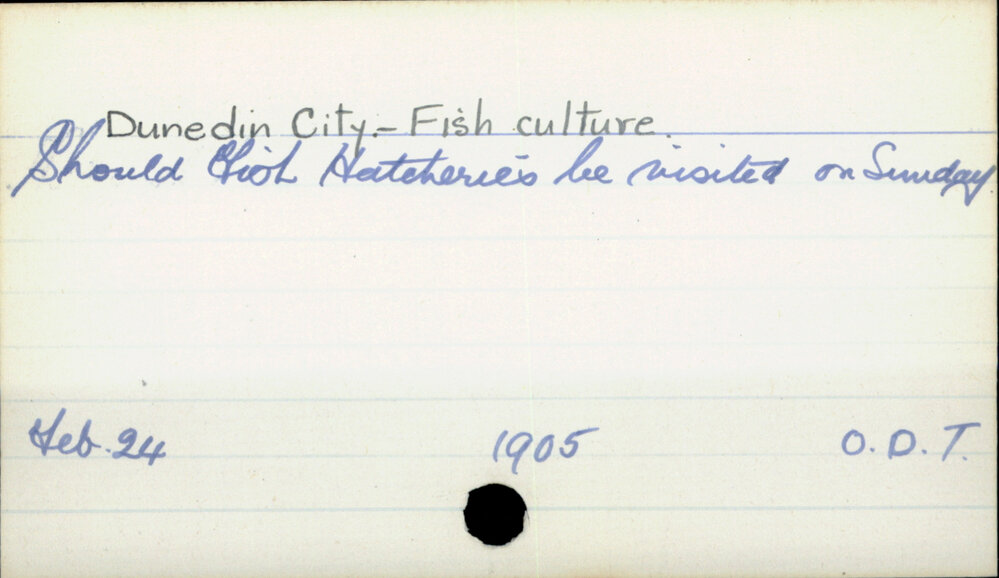 Dunedin City.- Fish culture.
Should Fish Hatcheries be visited on Sunday
Feb. 24 1905 O. D. T.